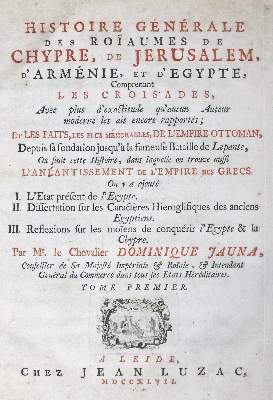 HISTOIRE GÉNÉRALE
DES ROÏAUMES DE
CHYPRE, DE JERUSALEM,
D'ARMÉNIE, ET D'EGYPTE,
Comprenant
LES CROISADES,
Avec plus d'exactitude qu'aucun Auteur
moderne les ait encore rapportés;
ET LES FAITS, LES PLUS MÉMORABLES, DE L'EMPIRE OTTOMAN,
Depuis sa fondation jusqu'à la fameuse Bataille de Lepante,
Où finit cette Histoire, dans laquelle on trouve aussi
L'ANÉANTISSEMENT DE L'EMPIRE DES GRECS.
On y a ajouté
I. L'Etat présent de l'Egypte.
II. Dissertation sur les Caractères Hieroglifiques des anciens
Egyptiens.
III. Reflexions sur les moïens de conquérir l'Egypte & la
Chypre.
Par Mr. le Chevalier DOMINIQUE JAUNA,
Conseiller de Sa Majesté Impériale & Roïale, & Intendant
Général du Commerce dans tous ses Etats Héréditaires.
TOME PREMIER.
A LEIDE,
CHEZ JEAN LUZAC,
MDCCXLVII.